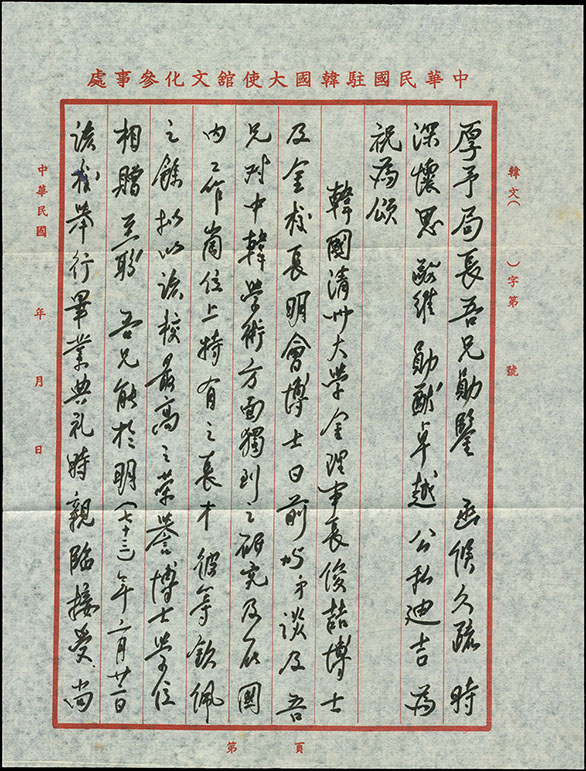 中華民國駐韓國大使館文化參事處
韓文( )字第 號
厚予局長吾兄勛鑒 函候久疏時
深懷思敬維 勛猷卓越 公私迪吉為
祝為頌
韓國清州大學金理事長俊喆博士
及金校長明會博士日前與弟談及吾
兄對中韓學術方面獨到之研究及在國
內工作崗位上特有之長才彼等欽佩
之餘擬以該校最高之榮譽博士學位
相贈 並盼 吾兄能於明(七十三)年二月廿一日
該校舉行畢業典礼時親臨接受尚
中華民國 年 月 日
第 頁